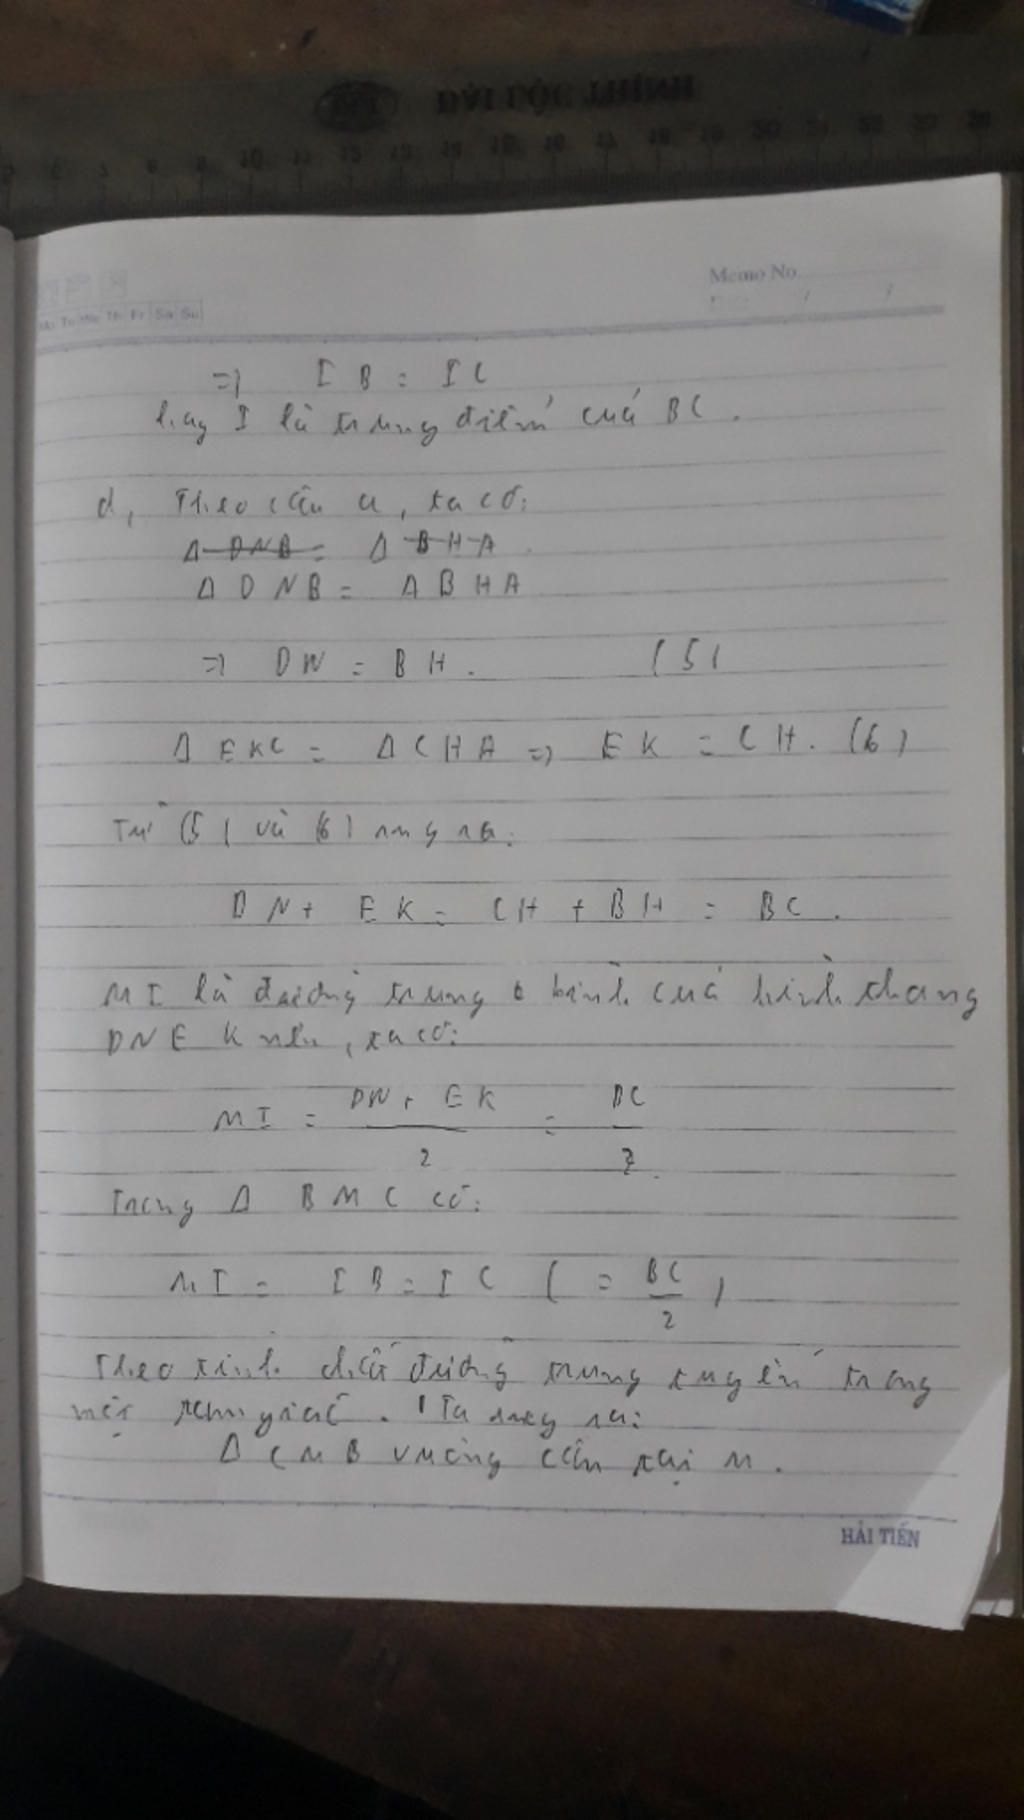 ĐẠI LỘC THỊNH
5 6 7 8 9 10 11 12 13 14 15 16 17 18 19 20 21 22 23 24
Memo No.
Mo Tu We Th Fr Sa Su
=> IB = IC
hay I là trung điểm của BC.
d, Theo câu a, ta có:
Δ DNB = Δ BHA
Δ DNB = Δ BHA
=> DN = BH. (5)
Δ EKC = Δ CHA => EK = CH. (6)
Từ (5) và (6) suy ra:
DN + EK = CH + BH = BC.
MI là đường trung bình của hình thang
DNEK nên, ta có:
MI = DN + EK / 2 = BC / 2.
Trong Δ BMC có:
MI = IB = IC ( = BC / 2 )
Theo tính chất đường trung tuyến trong
một tam giác. Ta suy ra:
Δ CMB vuông cân tại M.
HẢI TIẾN